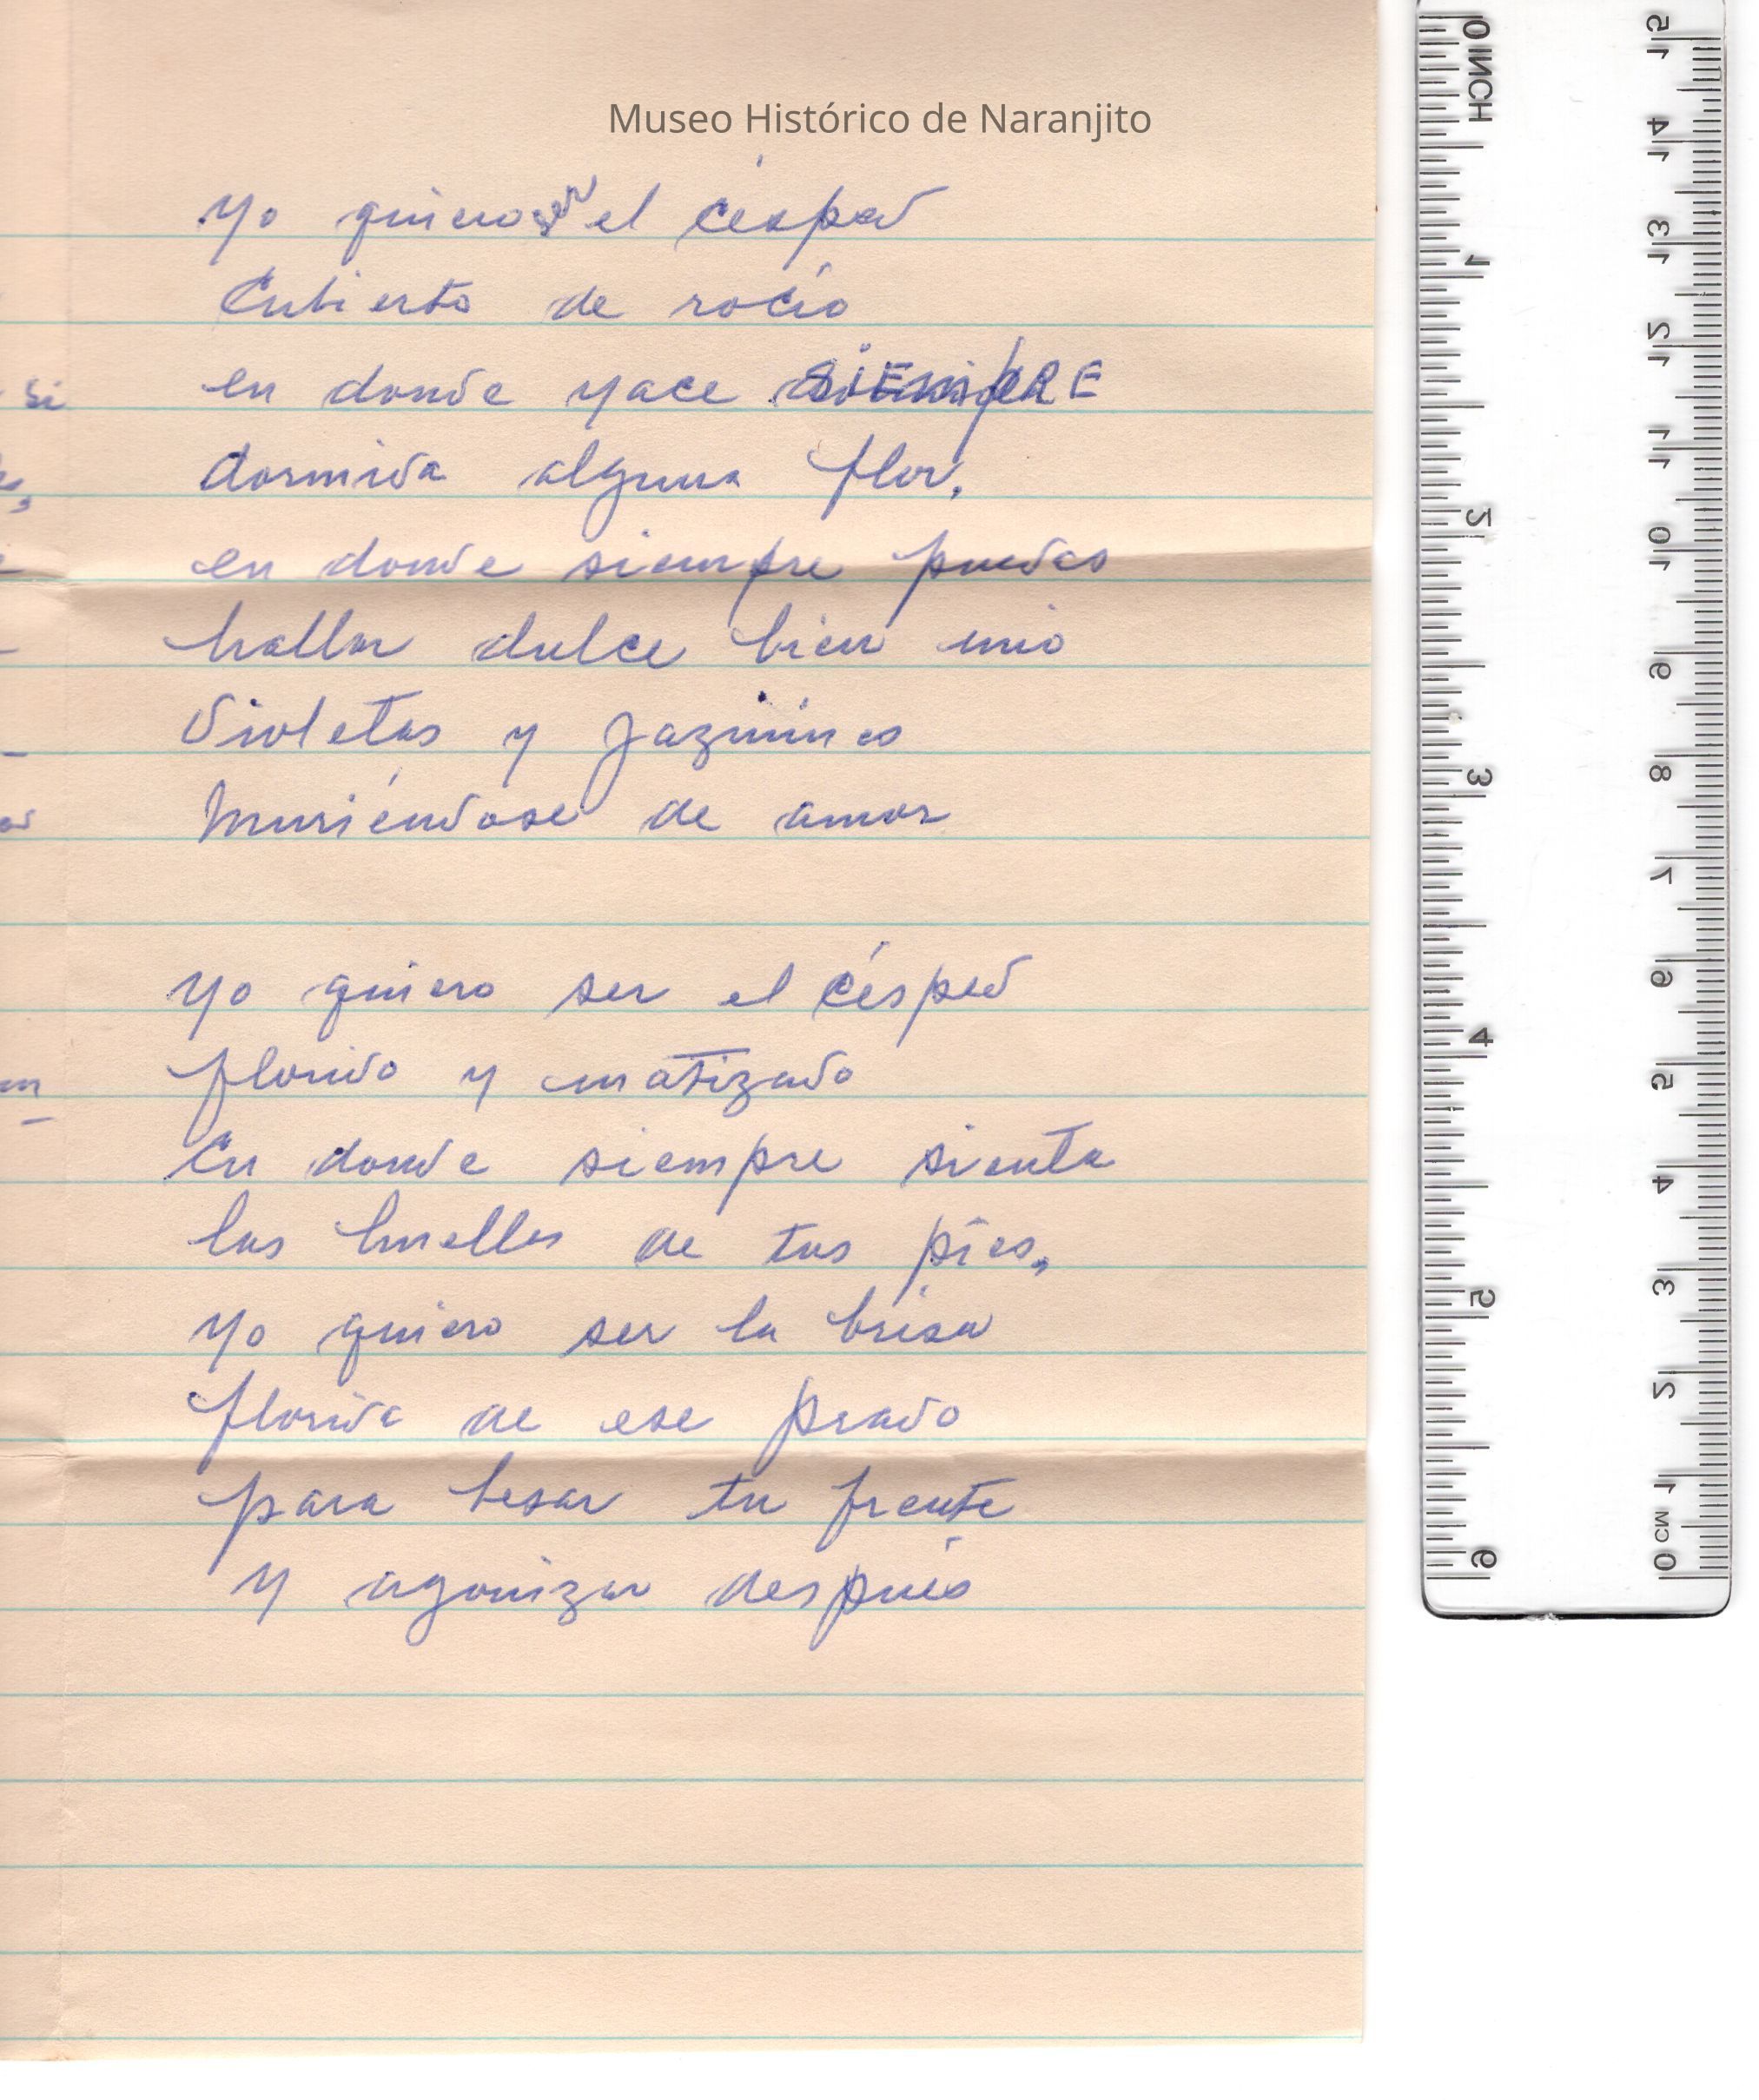 Museo Histórico de Naranjito
Yo quiero ser el césped
Cubierto de rocío
en donde yace SiEMpRE
dormida alguna flor,
en donde siempre puedas
hallar dulce bien mio
Violetas y Jazmines
Muriéndose de amor
Yo quiero ser el césped
florido y matizado
En donde siempre sienta
las huellas de tus pies,
Yo quiero ser la brisa
florida de ese prado
para besar tu frente
y agonizar después
si
0 INCH 1 2 3 4 5 6
15 14 13 12 11 10 9 8 7 6 5 4 3 2 1 0 CM